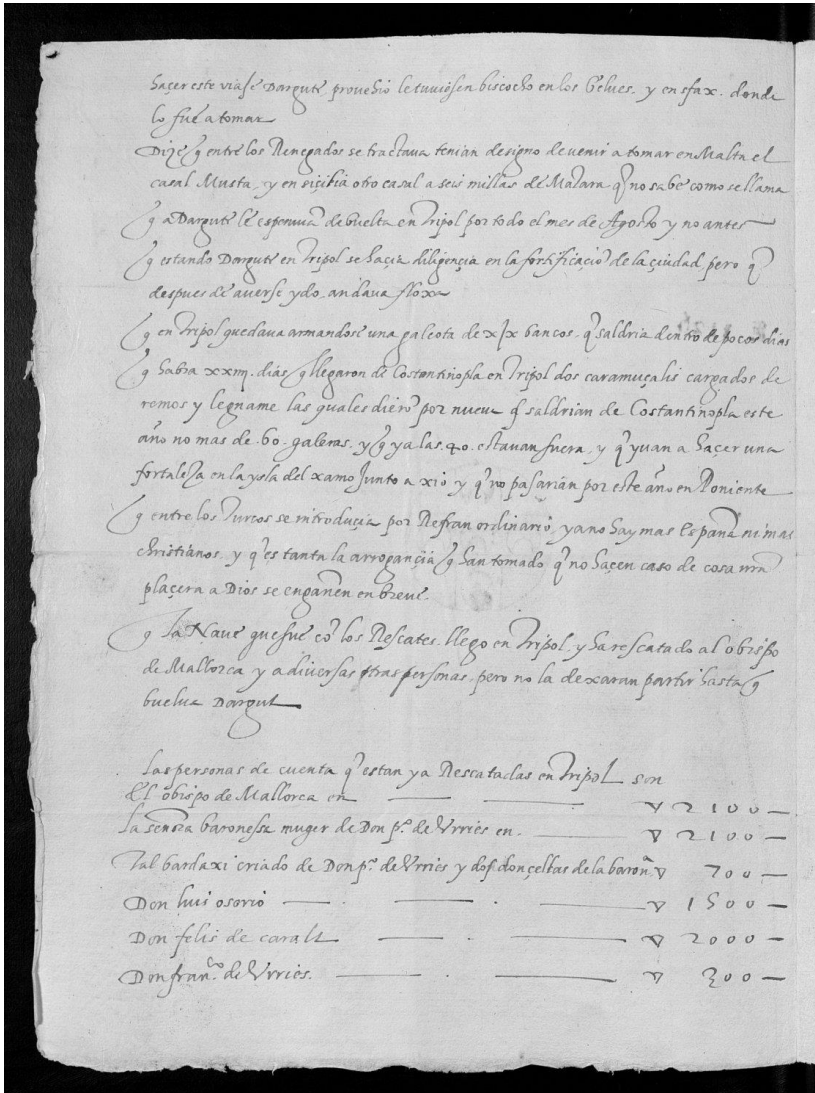 haçer este viaje Dargute provehio le tuviesen biscocho en los Gelves. y en sfax. donde
lo fue a tomar
Dize q entre los Renegados se tractava tenian designo de venir a tomar en Malta el
casal Musta, y en siçilia otro casal a seis millas de Maçara q̃ no sabe como se llama
q a Dargute le esperavã de buelta en Tripol por todo el mes de Agosto y no antes
q estando Dargute en Tripol se haçia diligençia en la fortificaciõ de la çiudad, pero q̃
despues de averse ydo, andava floxa
q en Tripol quedava armandose una galeota de xix bancos. q̃ saldria dentro de pocos dias
q habra xxiij. dias q llegaron de Costantinopla en Tripol dos caramuçalis cargados de
remos y legname las quales dierõ por nueva q̃ saldrian de Costantinopla este
año no mas de 60. galeras. y q ya las 40. estavan fuera, y q̃ yvan a haçer una
fortaleza en la ysla del xamo junto a xio y q̃ no pasarian por este año en Poniente
q entre los Turcos se introduçia por Refran ordinario, ya no hay mas España ni mas
christianos. y q̃ es tanta la arrogançia q han tomado q̃ no haçen caso de cosa nr̃a
plaçera a Dios se engañen en breve.
q La Nave que fue cõ los Rescates. llego en Tripol. y ha rescatado al obispo
de Mallorca y a diversas otras personas, pero no la dexaran partir hasta q
buelva Dargut
Las personas de cuenta q̃ estan ya Rescatadas en Tripol son
El obispo de Mallorca en — — ▽ 2100 —
La señora baronessa muger de Don p.º de Vrries en. — ▽ 2100 —
Tal bardaxi criado de Don p.º de Vrries y dos donçellas de la baronª ▽ 700 —
Don luis osorio — . — . — ▽ 1500 —
Don felis de caralt — — . — ▽ 2000 —
Don fran.co de Vrries. — . — ▽ 300 —